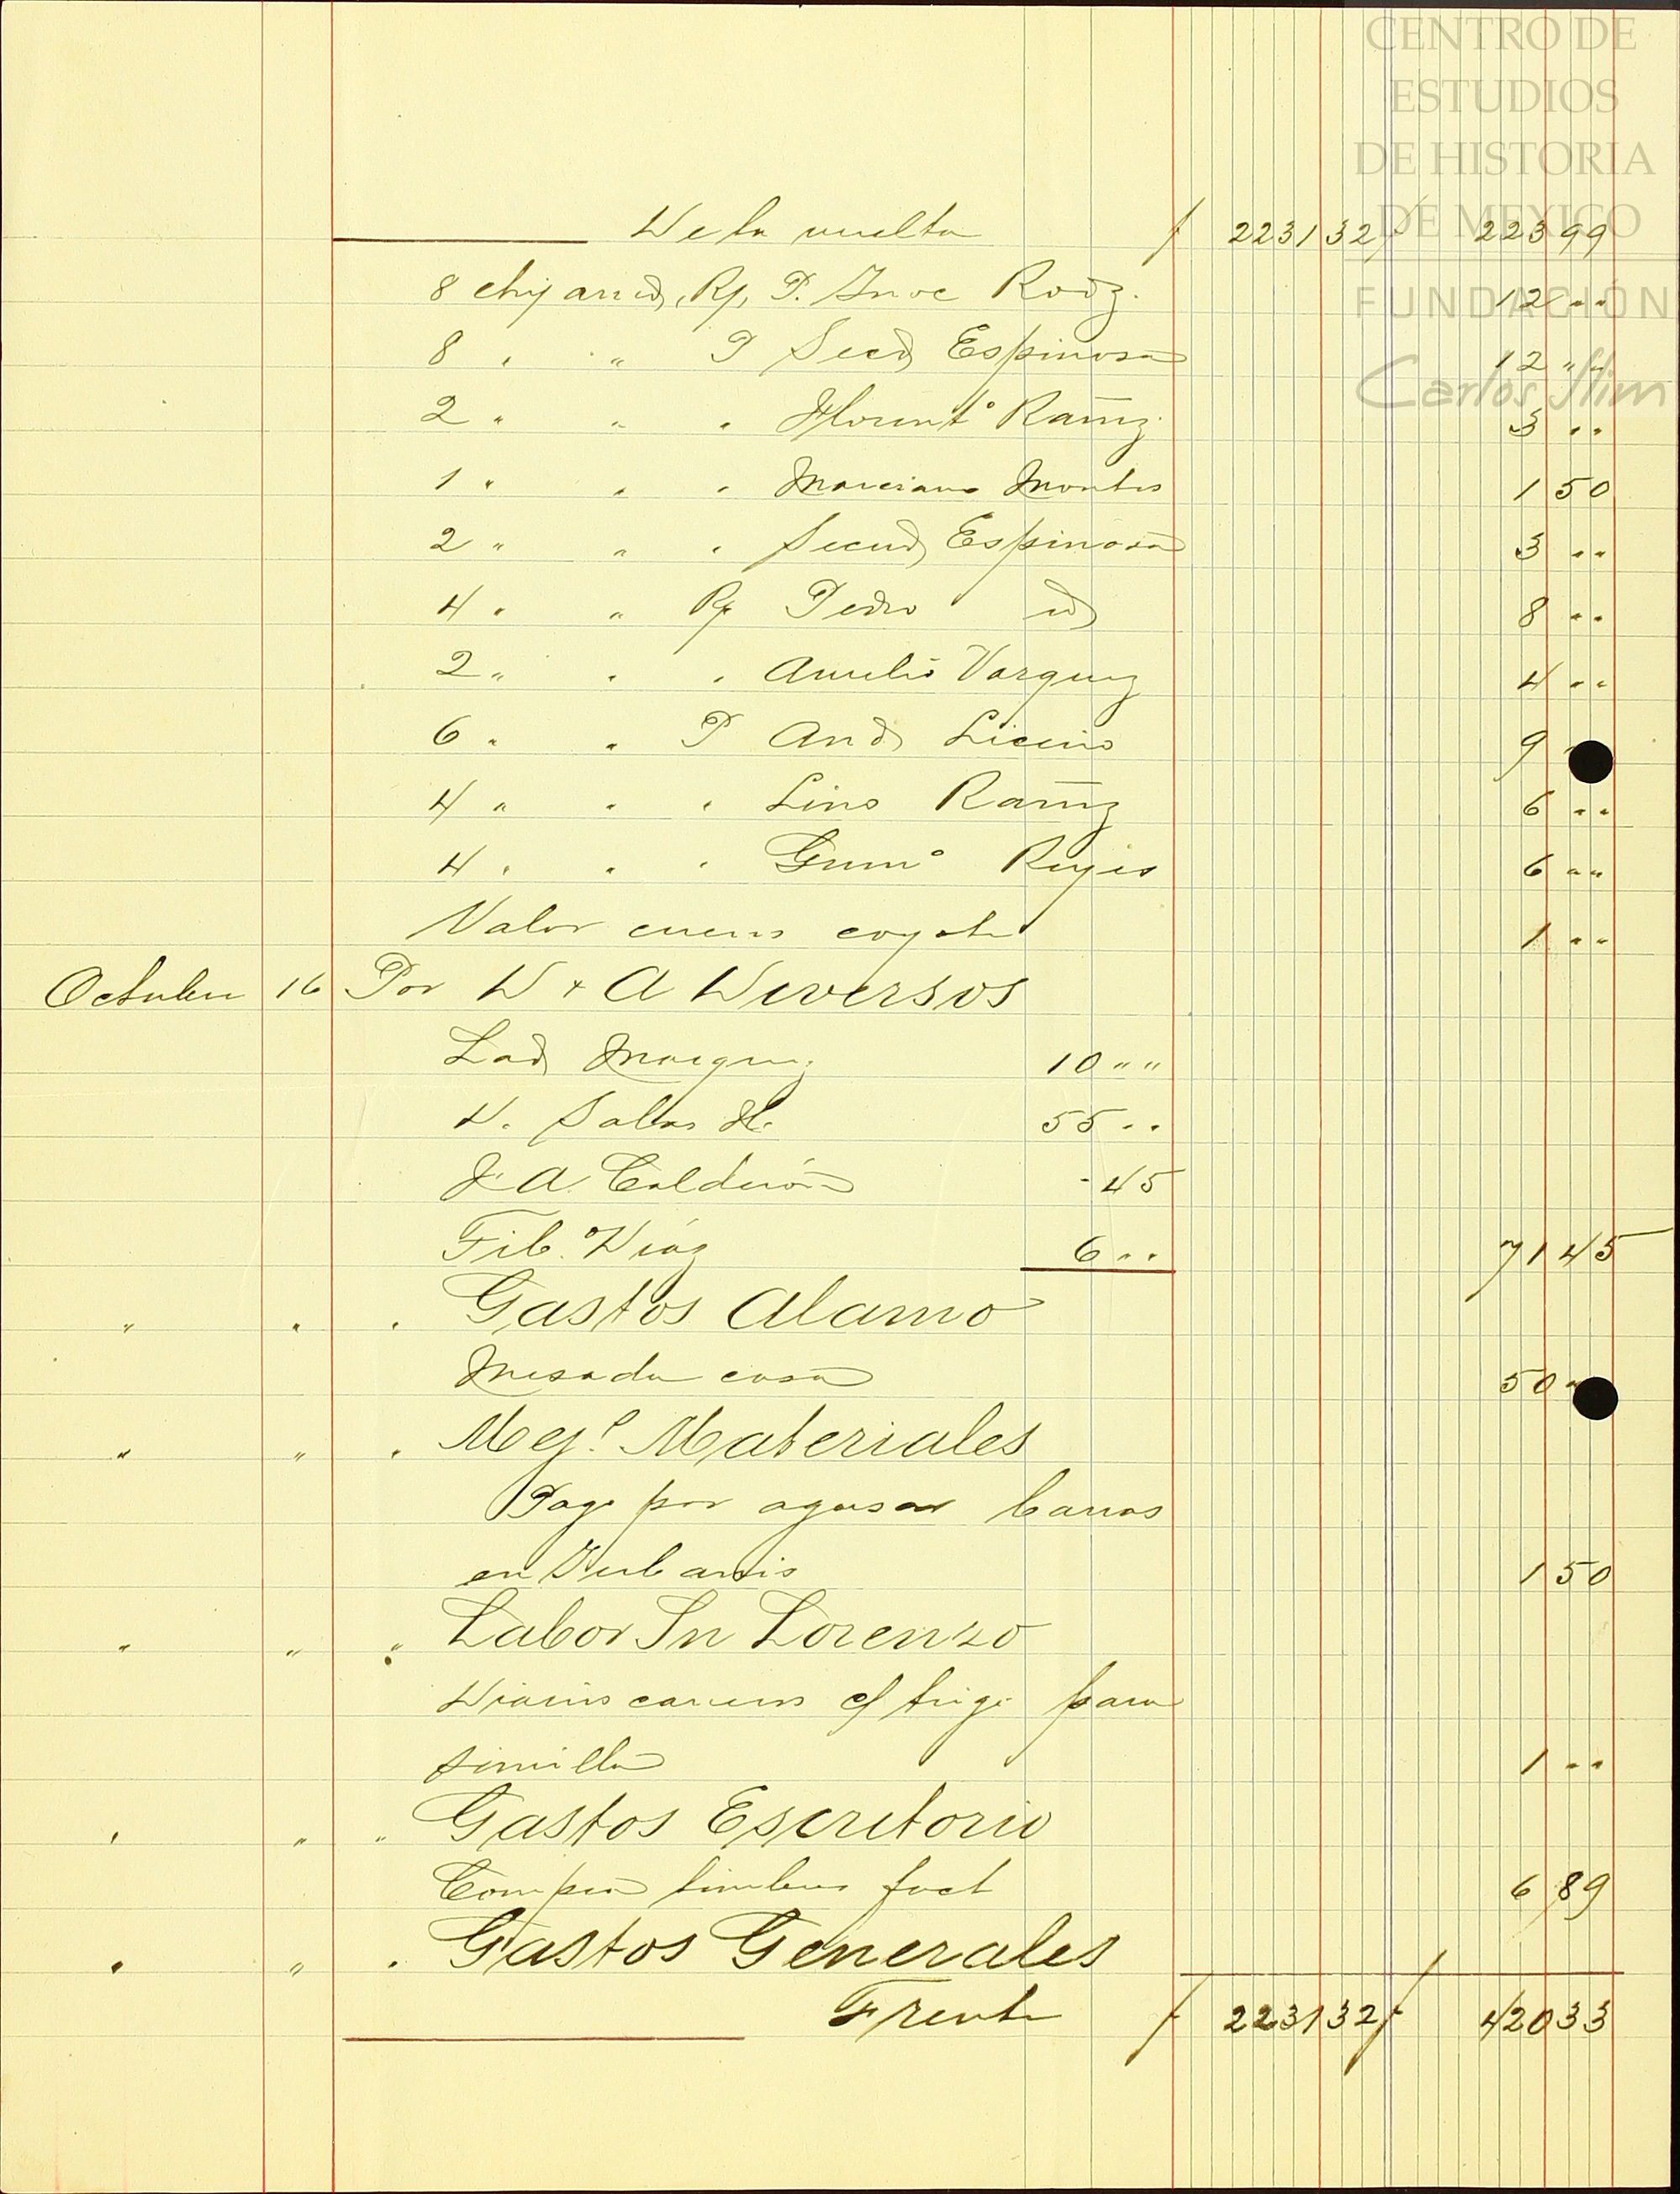 CENTRO DE
ESTUDIOS
DE HISTORIA
DE MEXICO
FUNDACIÓN
Carlos Slim
De la vuelta 2231 32 223 99
8 chij arrend, Rf, P. Inoc Rodz. 12 ""
8 " " P Secd Espinosa 12 ""
2 " " " Florent° Ramz 3 ""
1 " " " Marciano Montes 1 50
2 " " " Secud Espinosa 3 ""
4 " " Rf Pedro id 8 ""
2 " " " Aurelio Vazquez 4 ""
6 " " P And Liceiro 9
4 " " " Lino Ramz 6 ""
4 " " " Gum° Reyes 6 ""
Valor cuero coyote 1 ""
Octubre 16 Por D & A Diversos
Lad Marquez 10 ""
D. Salas H. 55 ""
J. A. Calderón " 45
Tib. Díaz 6 "" 71 45
" " " Gastos Alamo
Mesada casa 50 "
" " " Mej.s Materiales
Pago por aguzar barras
en 1 50
" " " Labor Sn Lorenzo
Diarios carreros c/ trigo para
semilla 1 ""
" " " Gastos Escritorio
Compra timbres fact 6 89
" " " Gastos Generales
Frente 2231 32 420 33